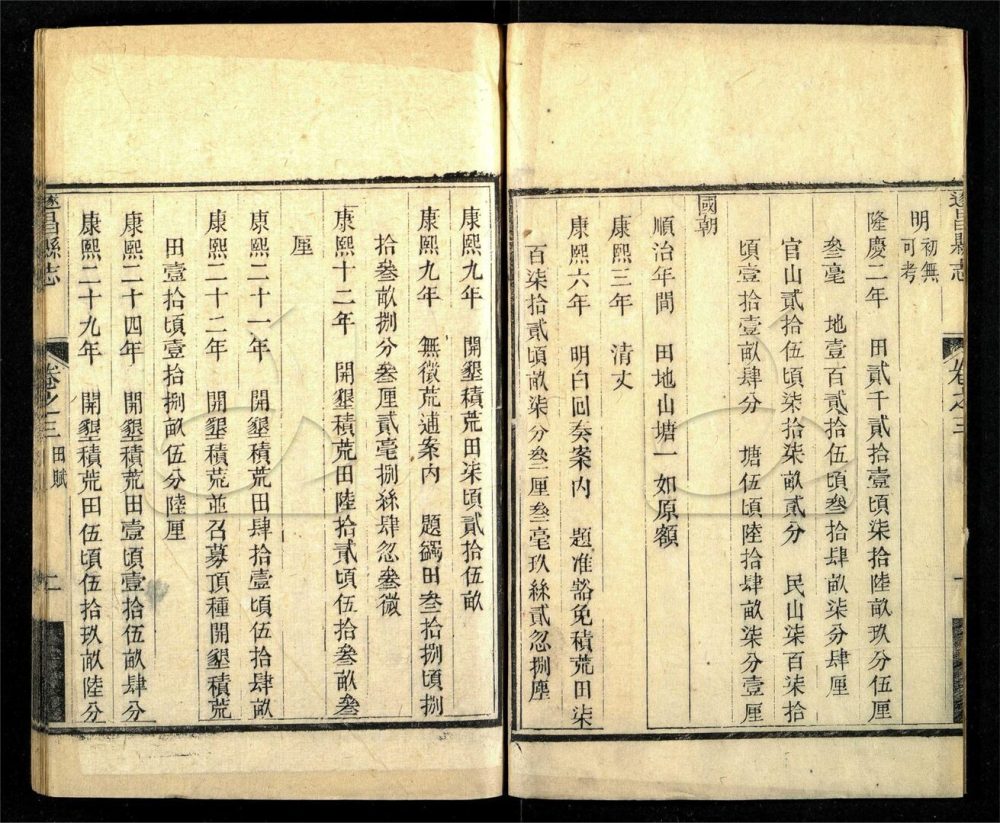 遂昌縣志
卷之三
一
明初無可考
隆慶二年　田貳千貳拾壹頃柒拾陸畝玖分伍厘
叁毫　地壹百貳拾伍頃叁拾肆畝柒分肆厘
官山貳拾伍頃柒拾柒畝貳分　民山柒百柒拾
頃壹拾壹畝肆分　塘伍頃陸拾肆畝柒分壹厘
國朝
順治年間　田地山塘一如原額
康熙三年　清丈
康熙六年　明白回奏案內　題准豁免積荒田柒
百柒拾貳頃畝柒分叁厘叁毫玖絲貳忽捌塵
康熙九年　開墾積荒田柒頃貳拾伍畝
康熙九年　無徵荒逋案內　題蠲田叁拾捌頃捌
拾叁畝捌分叁厘貳毫捌絲肆忽叁微
康熙十二年　開墾積荒田陸拾貳頃伍拾叁畝叁
厘
康熙二十一年　開墾積荒田肆拾壹頃伍拾肆畝
康熙二十二年　開墾積荒並召募頂種開墾積荒
田壹拾頃壹拾捌畝伍分陸厘
康熙二十四年　開墾積荒田壹頃壹拾伍畝肆分
康熙二十九年　開墾積荒田伍頃伍拾玖畝陸分
遂昌縣志
卷之三
田賦
二